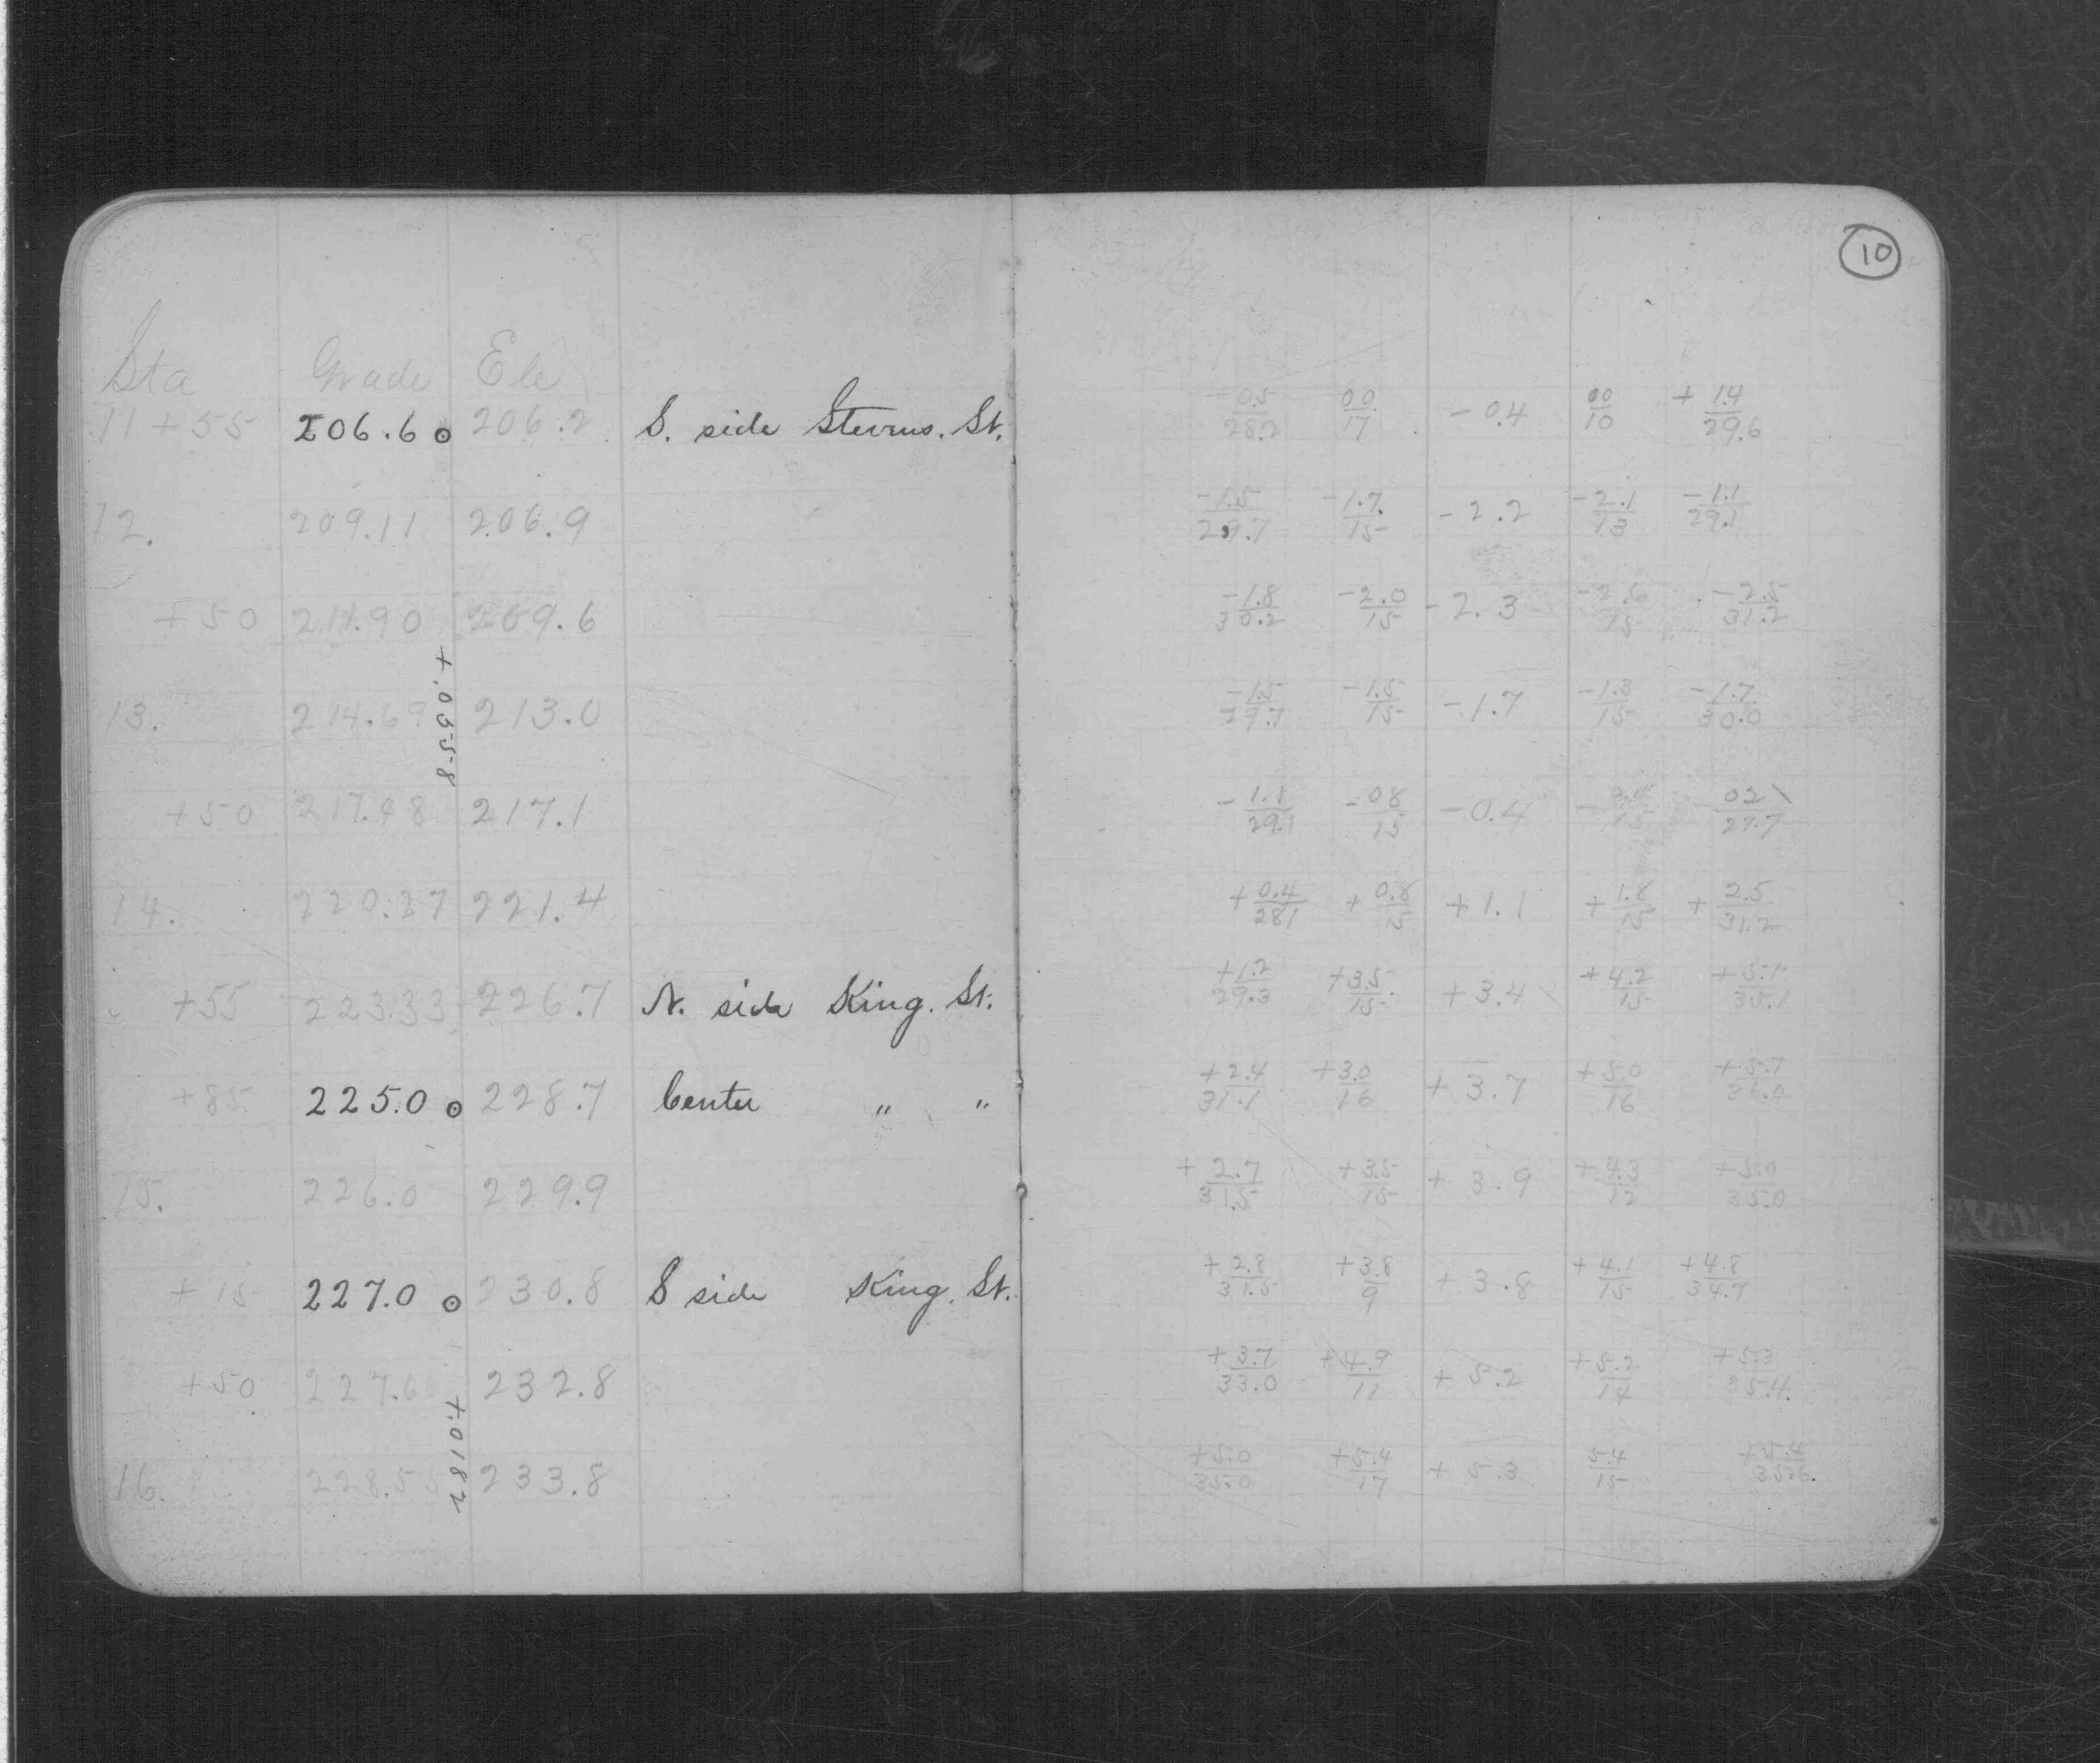 10
Sta Grade Ele
11+55 206.6 206.2 S. side Stevens. St. -0.5/28.2 00/17 -0.4 00/10 +1.4/29.6
12. 209.11 206.9 -1.5/29.7 -1.7/15 -2.2 -2.1/13 -1.1/29.1
+50 211.90 209.6 -1.8/30.2 -2.0/15 -2.3 -2.6/15 -2.5/31.2
+.0558
13. 214.69 213.0 -1.5/29.7 -1.5/15 -1.7 -1.3/15 -1.7/30.0
+50 217.48 217.1 -1.1/29.1 -08/15 -0.4 02/27.7
14. 220.27 221.4 +0.4/281 +0.8/15 +1.1 +1.8/15 +2.5/31.2
+55 223.33 226.7 N. side King. St. +1.2/29.3 +3.5/15 +3.4 +4.2/15 +5.1/35.1
+85 225.0 228.7 Center " " +2.4/31.1 +3.0/16 +3.7 +5.0/16 +5.7/36.0
15. 226.0 229.9 +2.7/31.5 +3.5/15 +3.9 +4.3/12 +5.0/35.0
+15 227.0 230.8 S side King. St. +2.8/31.5 +3.8/9 +3.8 +4.1/15 +4.8/34.7
+50 227.6 232.8 +3.7/33.0 +4.9/11 +5.2 +5.2/14 +5.3/35.4
+.0182
16. 228.55 233.8 +5.0/35.0 +5.4/17 +5.3 5.4/15 +5.4/35.6